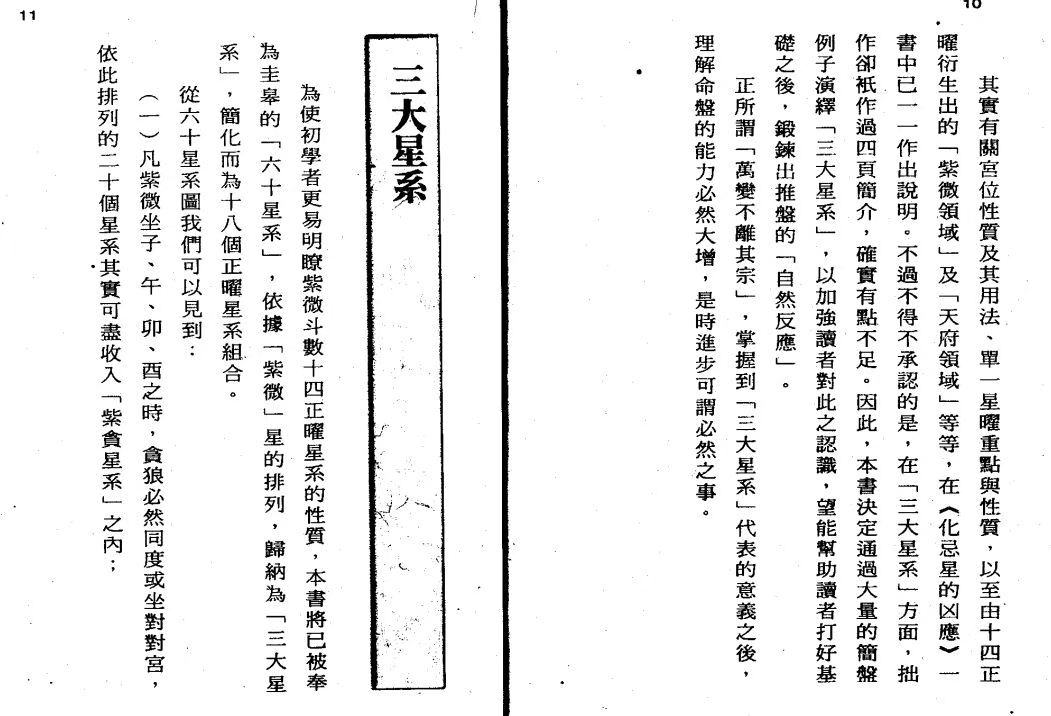 10
其實有關宮位性質及其用法、單一星曜重點與性質，以至由十四正
曜衍生出的「紫微領域」及「天府領域」等等，在《化忌星的凶應》一
書中已一一作出說明。不過不得不承認的是，在「三大星系」方面，拙
作卻祇作過四頁簡介，確實有點不足。因此，本書決定通過大量的簡盤
例子演繹「三大星系」，以加強讀者對此之認識，望能幫助讀者打好基
礎之後，鍛鍊出推盤的「自然反應」。
正所謂「萬變不離其宗」，掌握到「三大星系」代表的意義之後，
理解命盤的能力必然大增，是時進步可謂必然之事。
11
三大星系
為使初學者更易明瞭紫微斗數十四正曜星系的性質，本書將已被奉
為圭皋的「六十星系」，依據「紫微」星的排列，歸納為「三大星
系」，簡化而為十八個正曜星系組合。
從六十星系圖我們可以見到：
（一）凡紫微坐子、午、卯、酉之時，貪狼必然同度或坐對對宮，
依此排列的二十個星系其實可盡收入「紫貪星系」之內；